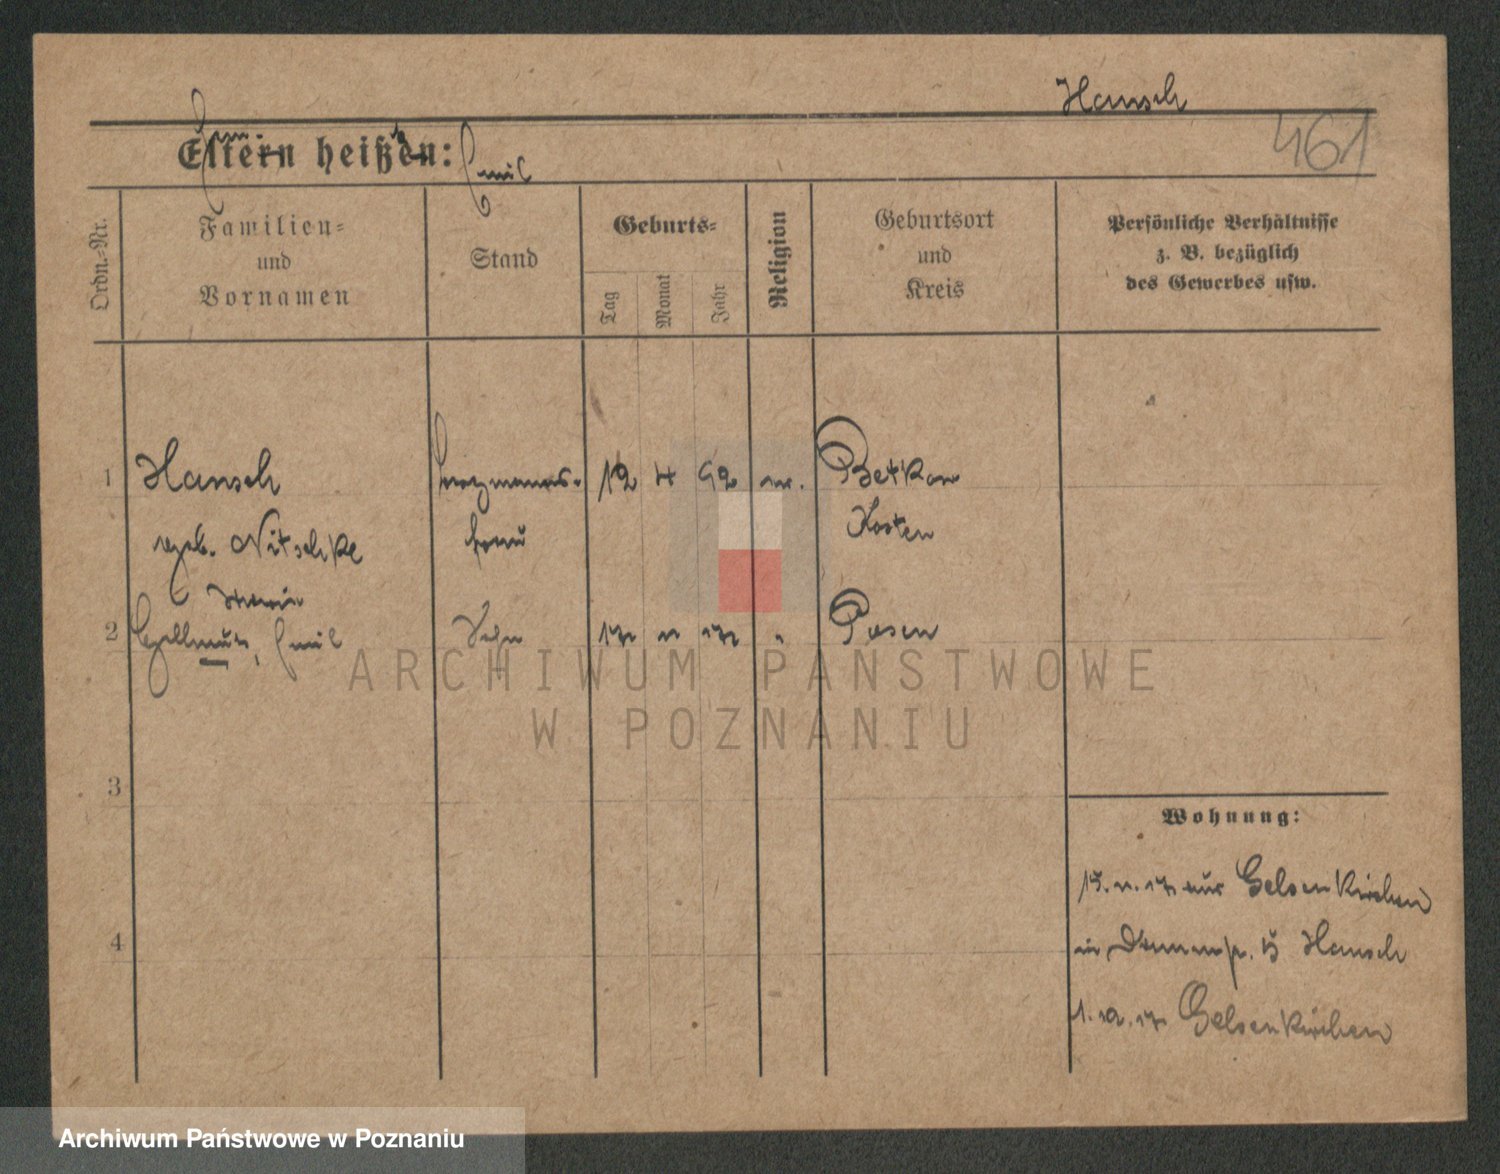 Hansch
461
Eltern heißen:
Emil
Ordn.-Nr.
Familien-
und
Vornamen
Stand
Geburts-
Tag
Monat
Jahr
Religion
Geburtsort
und
Kreis
Persönliche Verhältnisse
z. B. bezüglich
des Gewerbes usw.
1 Hansch 12 4 92 Betkow
geb. Nitschke frau Kosten
Maria
2 Hellmut, Emil Sohn Posen
3
4
Wohnung:
aus Gelsenkirchen
in Hansch
Gelsenkirchen
ARCHIWUM PAŃSTWOWE
W POZNANIU
Archiwum Państwowe w Poznaniu